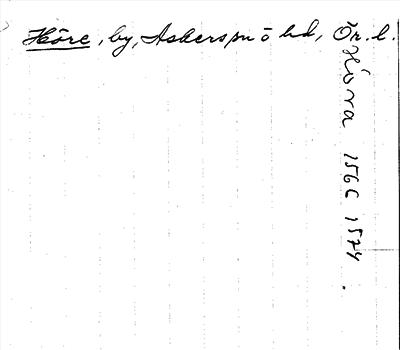 Höre, by, Askerspn ö hd, Ör. l.
Hora 1566 1574.